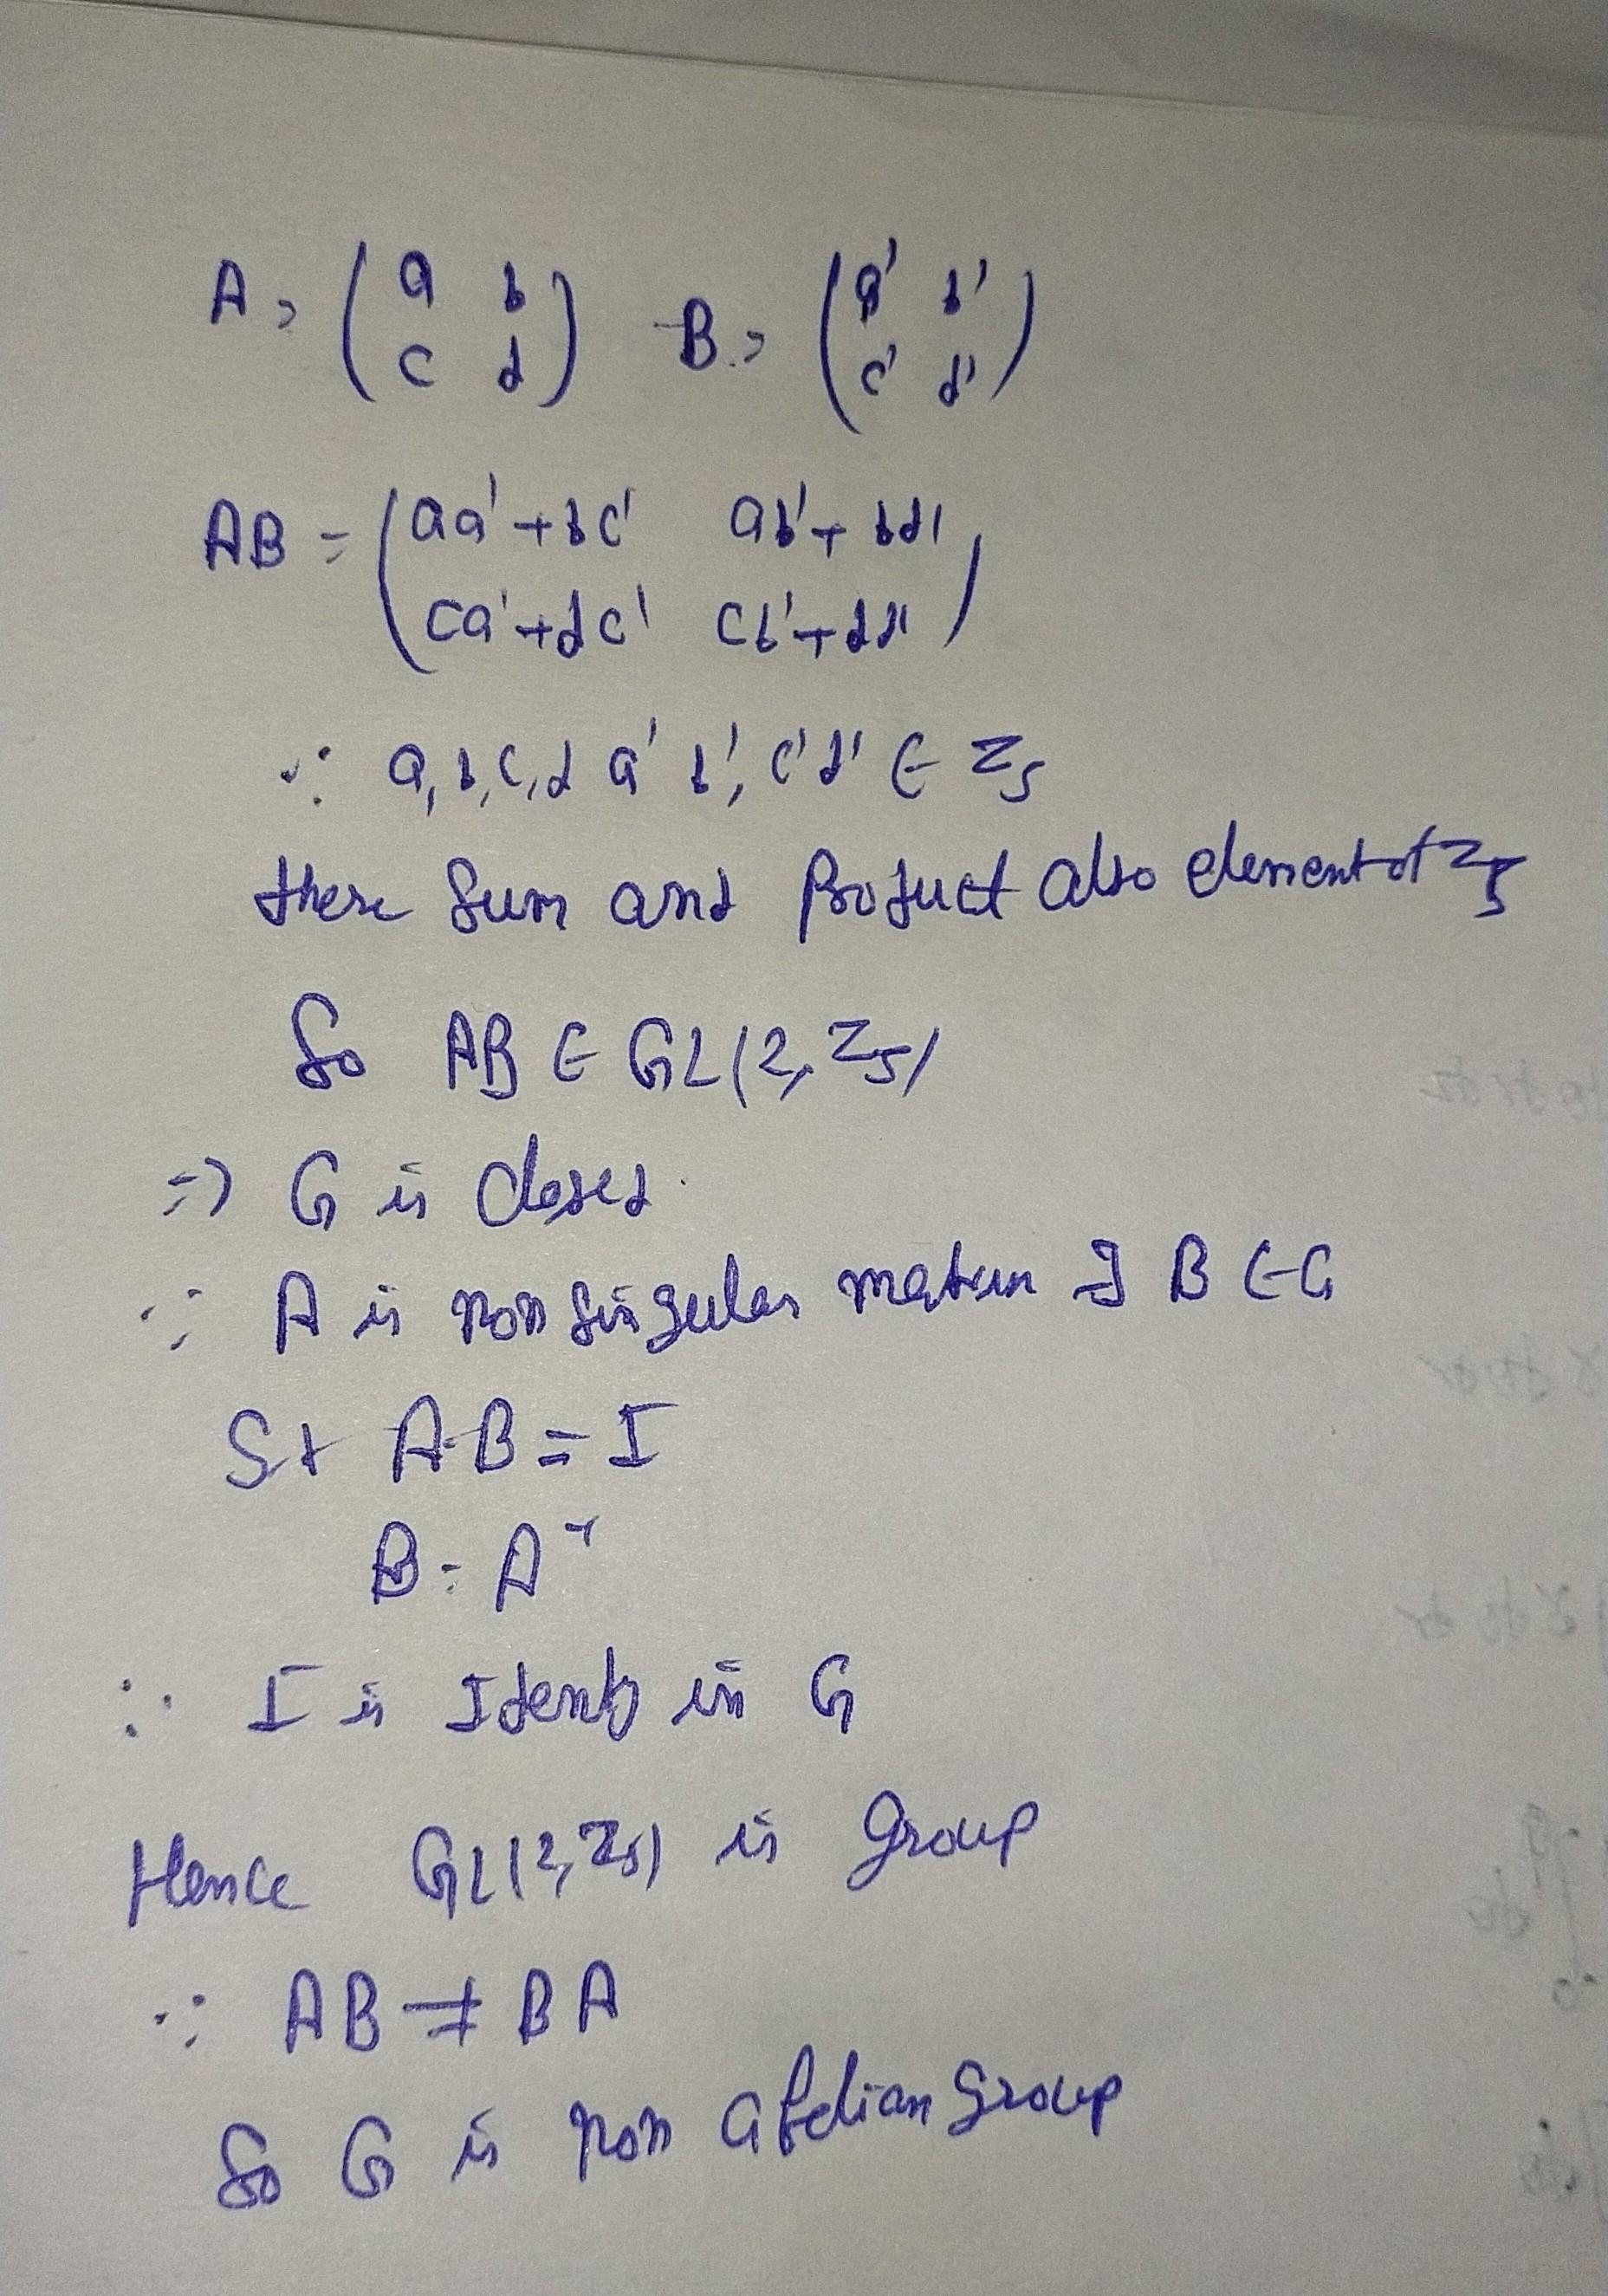 A = ( a b ) B = ( a' b' )
( c d ) ( c' d' )
AB = ( aa'+bc' ab'+bd' )
( ca'+dc' cb'+dd' )
∵ a,b,c,d a' b', c' d' ∈ Z5
there Sum and Product also element of Z5
So AB ∈ GL(2, Z5)
=> G is closed.
∵ A is non singular matrix ∃ B ∈ G
St A·B = I
B = A⁻¹
∵ I is Identy in G
Hence GL(2, Z5) is group
∵ AB ≠ BA
So G is non abelian group